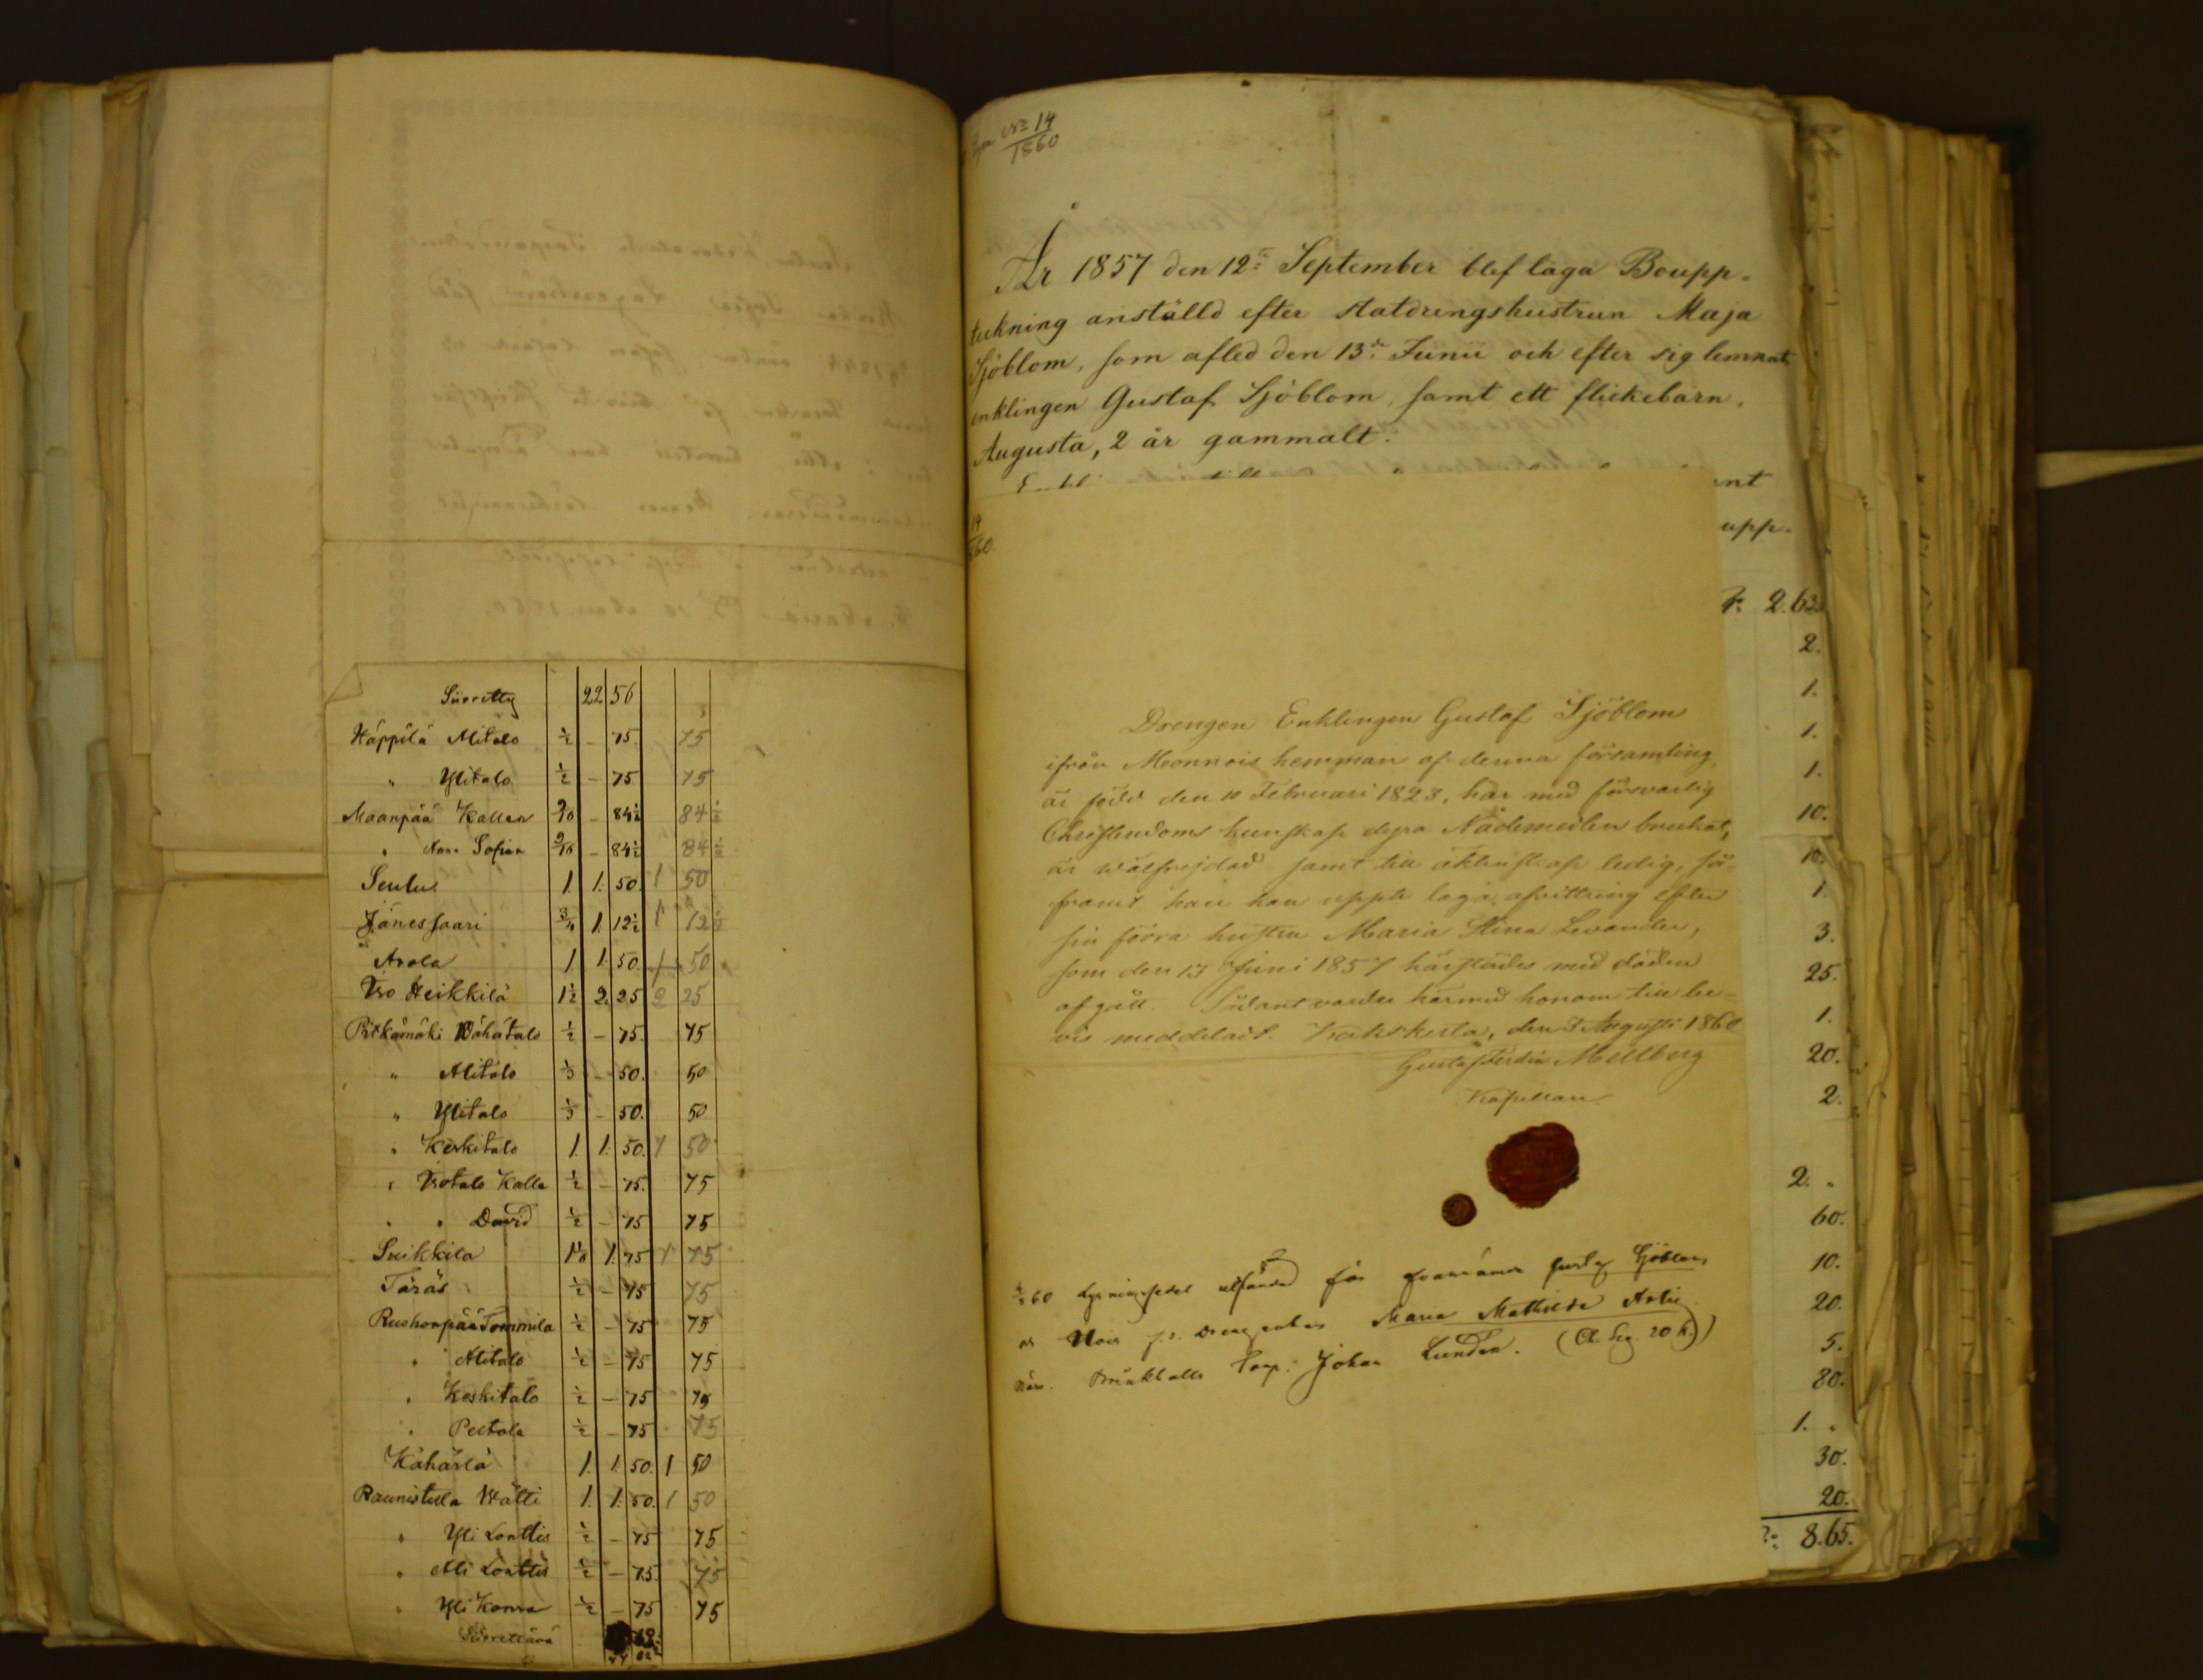 Siirretty 22 56
Häppilä Alitalo ½ - 75. 75
" Ylitalo ½ - 75 75
Maanpää Kallen 9/10 - 84½ 84½
" Sofian 9/10 - 84½ 84½
Seulu 1. 1. 50. 1 50
Jänessaari ¾ 1. 12½ 1 12½
Arola 1. 1. 50. 1 50
Iso Heikkilä 1½ 2. 25 2 25
Pitkämäki Wähätalo ½ - 75. 75
" Alitalo ⅓ - 50. 50
" Ylitalo ⅓ - 50. 50
" Keskitalo 1. 1. 50. 1 50
" Isotalo Kalle ½ - 75. 75
" " David ½ - 75 75
Suikkila 1. 75 1 75
Täräs ½ - 75 75
Ruohonpää Tommila ½ - 75 75
" Alitalo ½ - 75 75
" Keskitalo ½ - 75 75
" Peltola ½ - 75 75
Kähärlä 1. 1. 50. 1 50
Raunistula Wätti 1. 1. 50. 1 50
" Yli Lonttis ½ - 75 75
" Ali Lonttis ½ - 75 75
" Yli Konsa ½ - 75 75
Siirrettävä
No 14
1860
År 1857 den 12te September blef laga Boupp-
teckning anställd efter statdrengshustrun Maja
Sjöblom, som afled den 13de Junii och efter sig lemnat
enklingen Gustaf Sjöblom, samt ett flickebarn,
Augusta, 2 år gammalt.
14
860
Drengen Enklingen Gustaf Sjöblom
ifrån Monnois hemman af denna församling,
är född den 10 Februari 1823, har med försvarlig
Christendoms kunskap dyra Nådemedlen brukat,
är wälfrejdad samt till äktenskap ledig, så-
framt han kan uppte laga afvittring efter
sin förra hustru Maria Stina Levander,
som den 13 Juni 1857 härstädes med döden
afgått. Sådant varder härmed honom till be-
vis meddeladt. Kakskerta, den 3 Augusti 1860
Gustaf Ferdin. Mellberg
Kapellan
60 Lysningssedel utfärdad för Gustaf Sjöblom
Maria Mathilda
Brinkhalls Torp. Johan Lundén.
nt
upp.
2.63
2.
1.
1.
1.
10.
10.
1.
3.
25.
1.
20.
2.
2. "
60.
10.
20.
5.
80.
1. "
30.
20.
8.65.